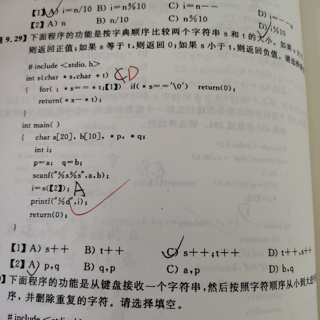 【1】A) i=n/10 B) i=n%10 C) i=n--
【2】A) n B) n/10 C) n%10 D) i%10
9.29】下面程序的功能是按字典顺序比较两个字符串 s 和 t 的大小,如果
则返回正值;如果 s 等于 t,则返回 0;如果 s 小于 t,则返回负值。请选择
# include <stdio.h>
int s(char *s,char *t)
{ for( ; *s==*t;【1】) if(*s=='\0') return(0);
return(*s-*t);
}
int main( )
{ char a[20], b[10], *p, *q;
int i;
p=a; q=b;
scanf("%s%s",a,b);
i=s(【2】); A
printf("%d",i);
return(0);
}
【1】A) s++ B) t++ C) s++;t++ D) t++,s++
【2】A) p,q B) q,p C) a,p D) b,q
】下面程序的功能是从键盘接收一个字符串,然后按照字符顺序从小到大
序,并删除重复的字符。请选择填空。
# include <stdio.h>